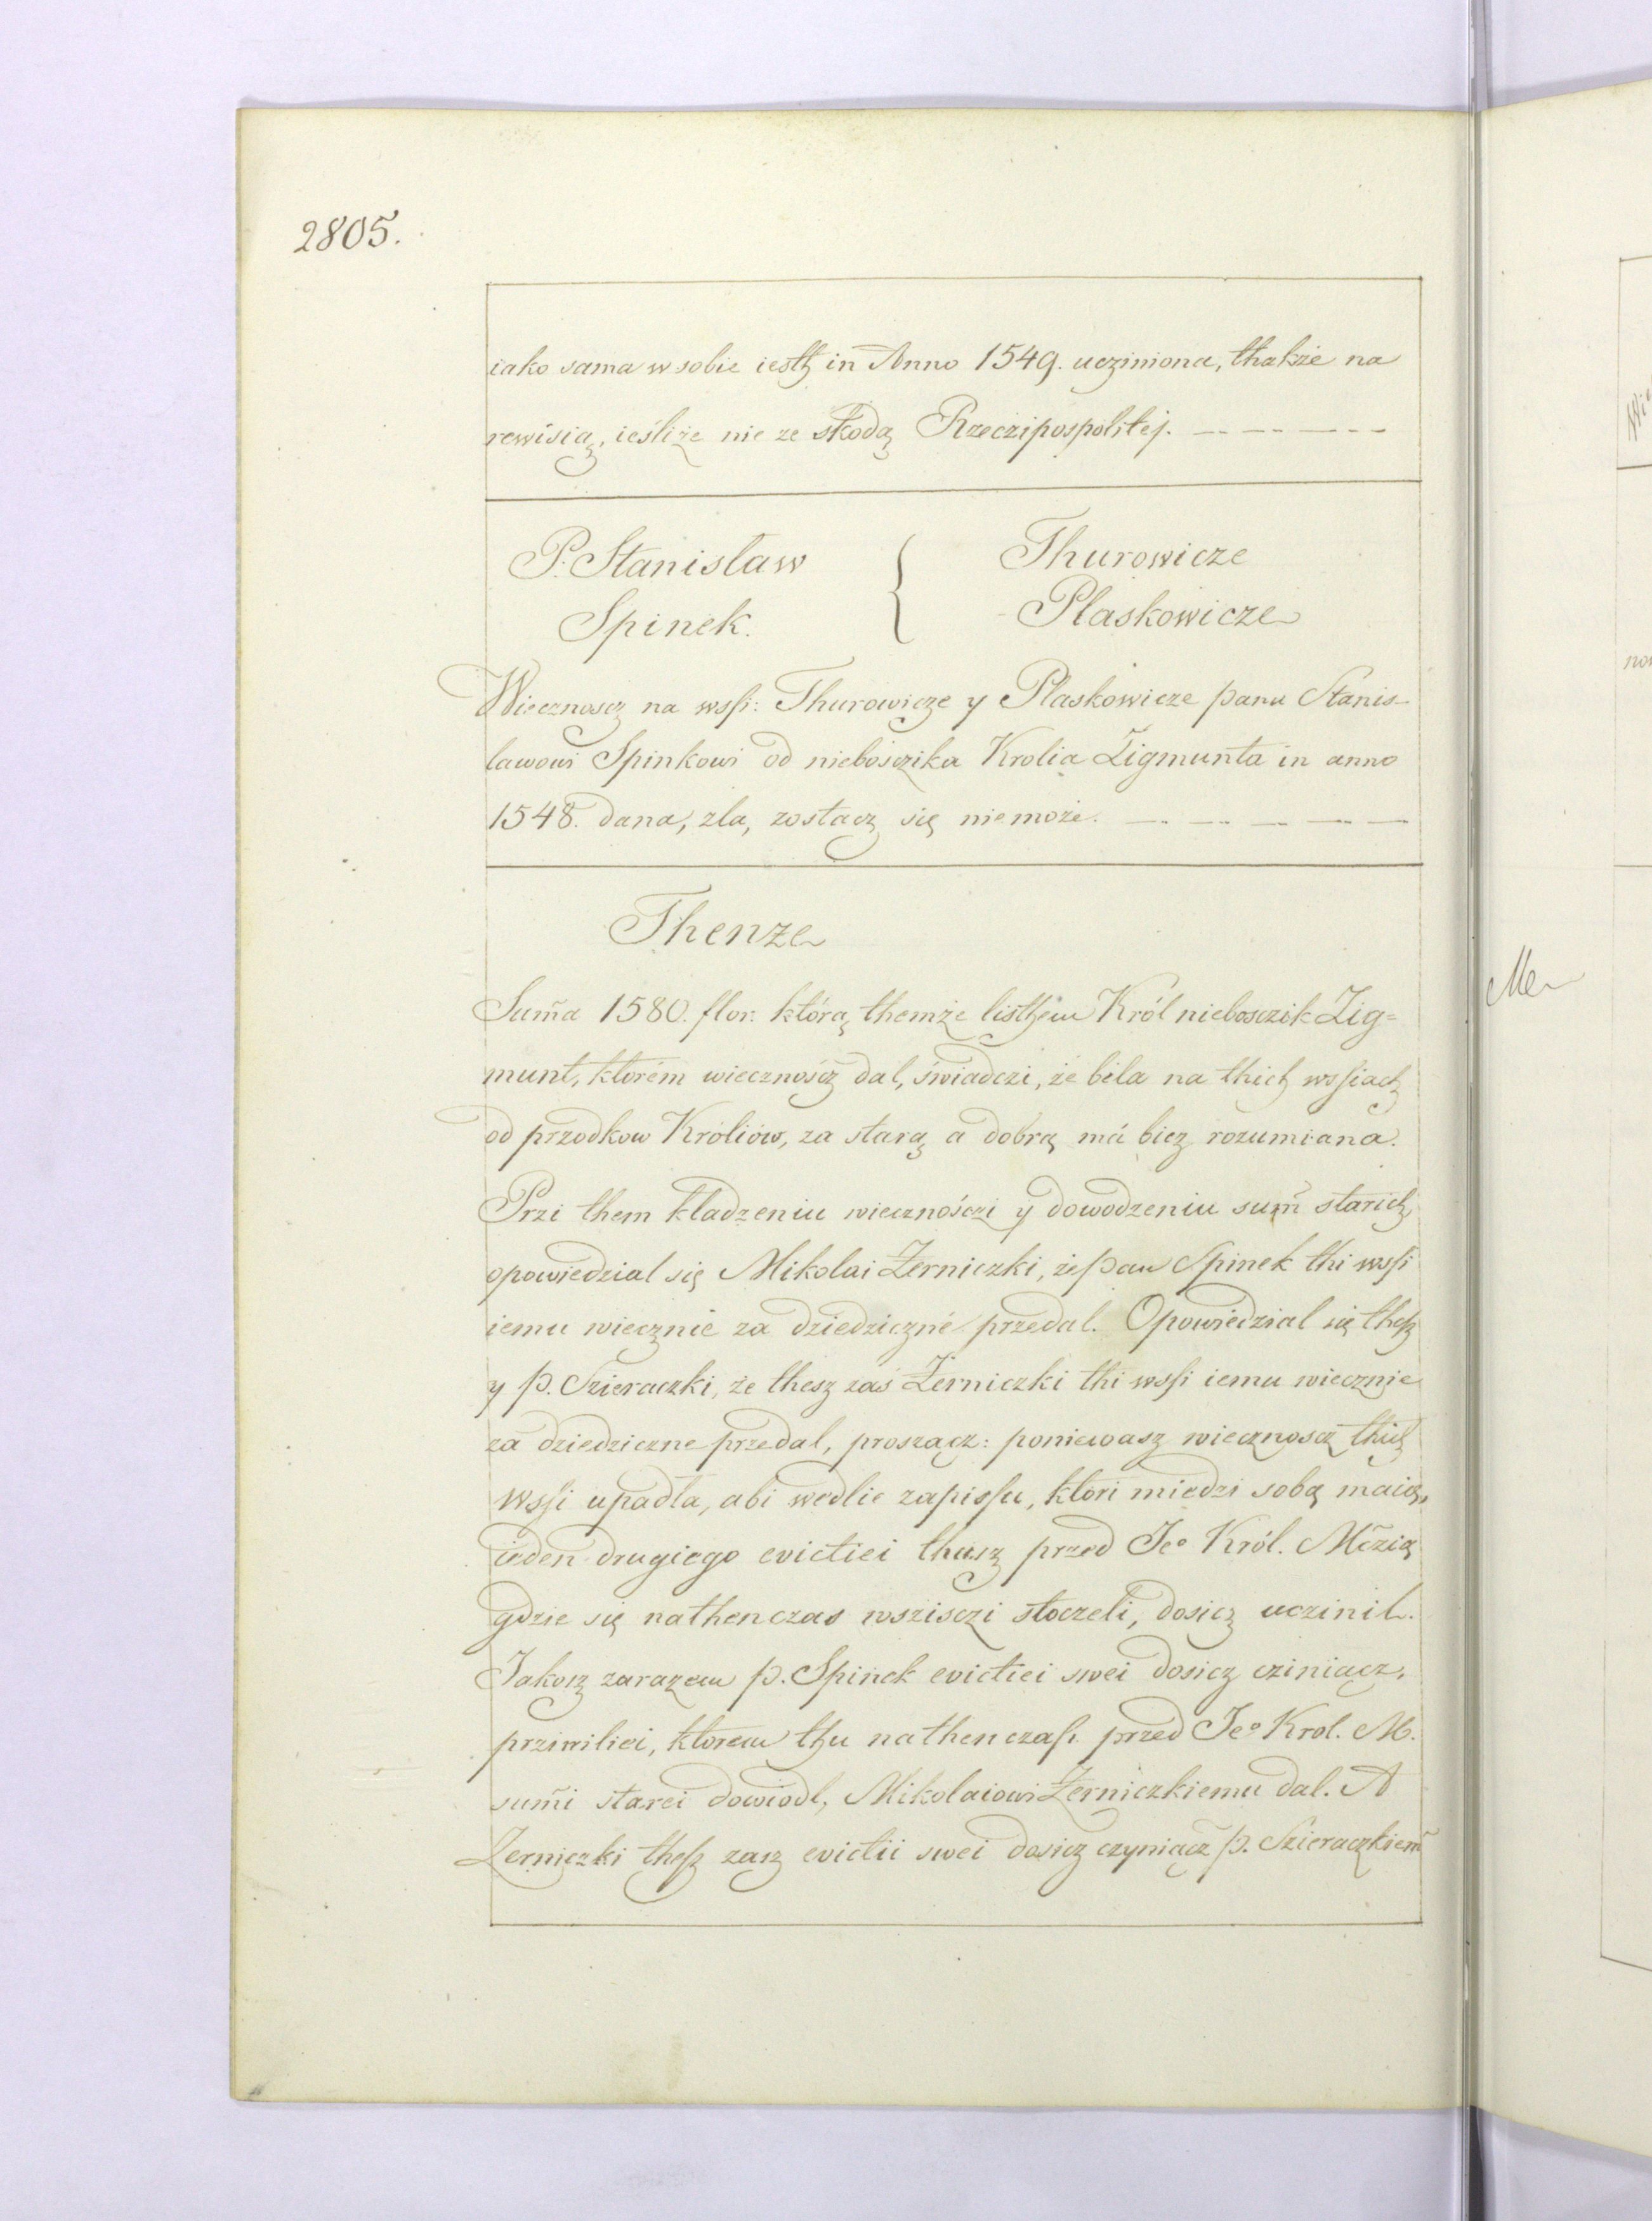 2805.
iako sama w sobie iesth in Anno 1549. ucziniona, thakże na
rewisią, ieśliże nie ze skodą Rzeczipospolitej.
P. Stanislaw { Thurowicze
Spinek. Plaskowicze
Wiecznoscz na wsſi: Thurowicze y Plaskowicze panu Stanis-
lawowi Spinkowi od nieboszika Krolia Zigmunta in anno
1548. dana, zla, zostacz się niemoże.
Thenze
Sum̃a 1580. flor. którą themże listhem Król nieboszczik Zig=
munt, ktorém wiecznoścz dal, świadczi, że bila na thich wsſiach
od przodkow Króliów, za starą a dobrą má bicz rozumiana.
Przi them kladzeniu wiecznośczi y dowodzeniu sum̃ starich,
opowiedzial się Mikolai Żerniczki, że pan Spinek thi wsſi
iemu wiecznie za dziedziczné przedal. Opowiedzial się theſz
y p. Szieraczki, że thesz zaś Żerniczki thi wsſi iemu wiecznie
za dziedziczne przedal, proszącz: poniewasz wiecznoscz thich
wsſi upadla, abi wedlie zapisſu, ktori miedzi sobą maią,
ieden drugiego evictiei thusz przed Jeº Król. Mc̃zią
gdzie się nathenczas wsziszczi stoczeli, dosicz uczinil.
Jakosz zarazem p. Spinek evictiei swei dosicz cziniącz,
prziwiliei, ktorem thu nathenczaſs przed Jeº Krol. M.
sum̃i starei dowiodl, Mikolaiowi Żerniczkiemu dal. A
Zerniczki theſz zasz evictii swei dosicz czyniącz p. Szieraczkiem̃
Me